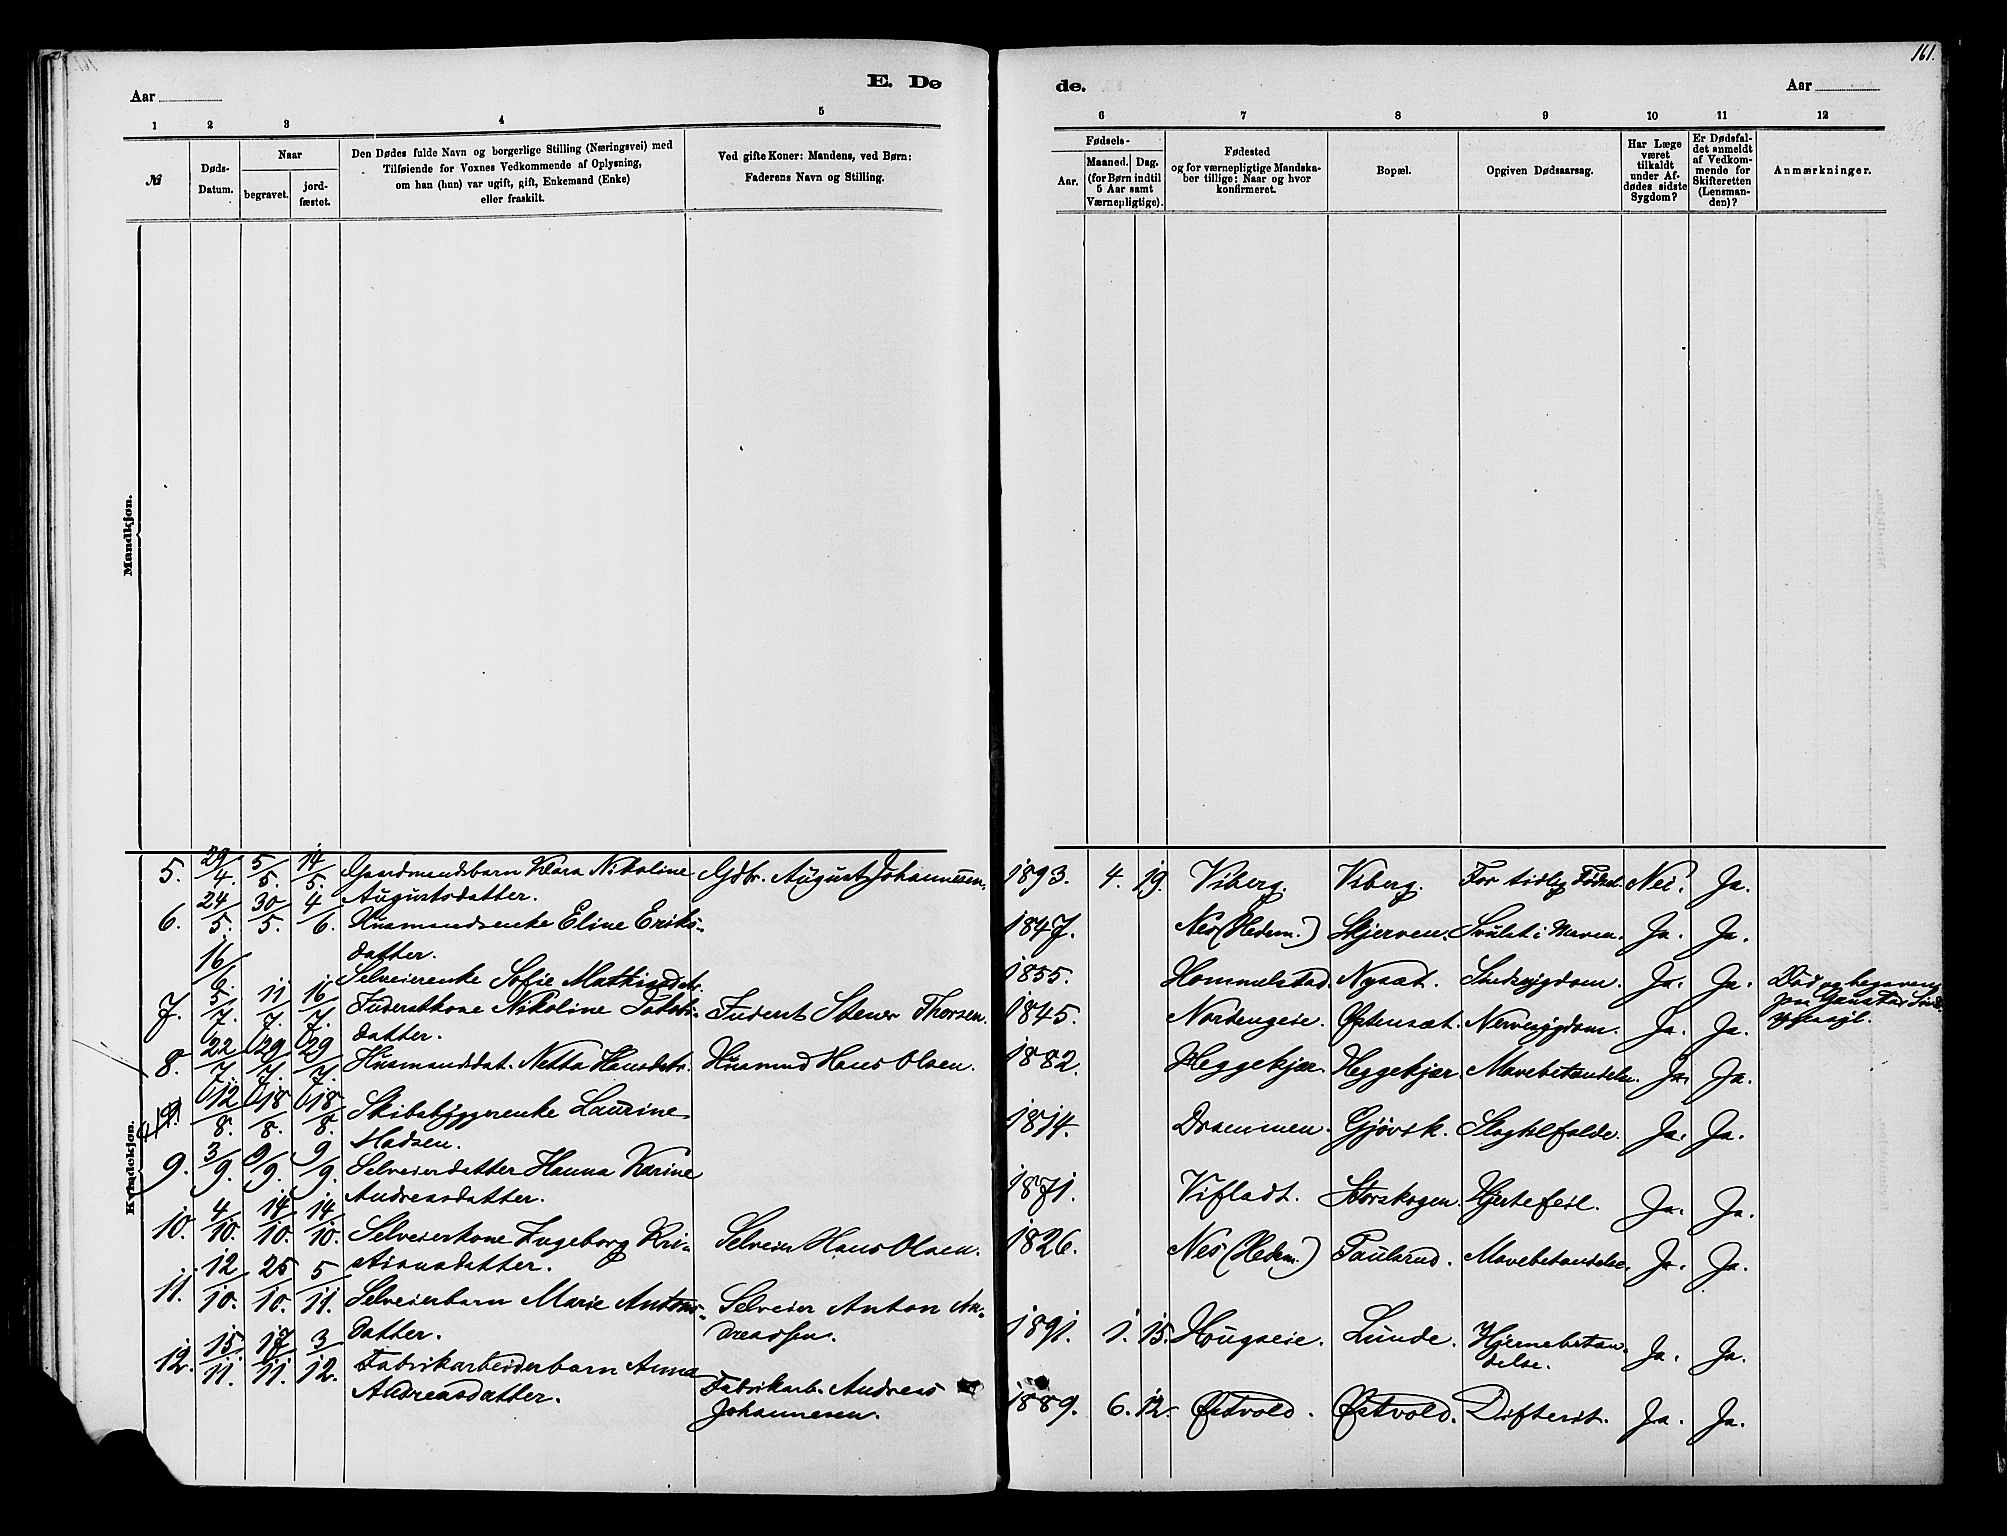 161.
E. Dø
de.
Aar
Aar
1 2 3 4 5
6 7 8 9 10 11 12
№
Døds-
Datum.
Naar
begravet.
jord-
fæstet.
Den Dødes fulde Navn og borgerlige Stilling (Næringsvei) med
Tilføiende for Voxnes Vedkommende af Oplysning,
om han (hun) var ugift, gift, Enkemand (Enke)
eller fraskilt.
Ved gifte Koner: Mandens, ved Børn:
Faderens Navn og Stilling.
Fødsels-
Aar.
Maaned. Dag.
(for Børn indtil
5 Aar samt
Værnepligtige).
Fødested
og for værnepligtige Mandska-
ber tillige: Naar og hvor
konfirmeret.
Bopæl.
Opgiven Dødsaarsag.
Har Læge
været
tilkaldt
under Af-
dødes sidste
Sygdom?
Er Dødsfal-
det anmeldt
af Vedkom-
mende for
Skifteretten
(Lensman-
den)?
Anmærkninger.
Mandkjøn.
Kvindekjøn.
5. 29/4. 5/5. 14/5. Gaardmandsbarn Klara Nikoline Gdbr. August Johannesen. 1893. 4. 19. Viberg. Viberg. For tidlig Fødsel. Nei. Ja.
Augustsdatter.
6. 24/5. 30/5. 4/6. Husmandsenke Eline Eriks- 1847. Nes (Hedem.) Skjerven. Svulst i Maven. Ja. Ja.
datter.
16/6. Selveierenke Sofie Mathisdtr. 1855. Hommelstad. Nysæt. Sindssygdom. Ja. Ja. Død og begraven
paa Gaustad Sinds-
sygeasyl.
7. 5/7. 11/7. 16/7. Føderaadkone Nikoline Jakobs- Føderaadsm. Stener Thorsen. 1845. Nordengeie. Østensæt. Nervesygdom. Ja. Ja.
datter.
8. 22/7. 29/7. 29/7. Husmandsdat. Netta Hansdtr. Husmand Hans Olsen. 1882. Heggekjær. Heggekjær. Mavebetændelse. Ja. Ja.
12/8. 18/8. 18/8. Skibsbyggerenke Laurine 1814. Drammen. Gjøvik. Slagtilfælde. Ja. Ja.
Madsen.
9. 3/9. 9/9. 9/9. Selveierdatter Hanna Karine 1871. Vifladt. Storskogen. Hjertefeil. Ja. Ja.
Andreasdatter.
10. 4/10. 14/10. 14/10. Selveierkone Ingeborg Kri- Selveier Hans Olsen. 1826. Nes (Hedem.) Paulsrud. Mavebetændelse. Ja. Ja.
stiansdatter.
11. 12/10. 25/10. 5/11. Selveierbarn Marie Antons- Selveier Anton An- 1891. 1. 15. Hougseie. Lunde. Hjernebetæn- Ja. Ja.
datter. dreassen. delse.
12. 15/11. 17/11. 3/12. Fabrikarbeiderbarn Anna Fabrikarb. Andreas 1889. 6. 12. Østvold. Østvold. Difterit. Ja. Ja.
Andreasdatter. Johannesen.